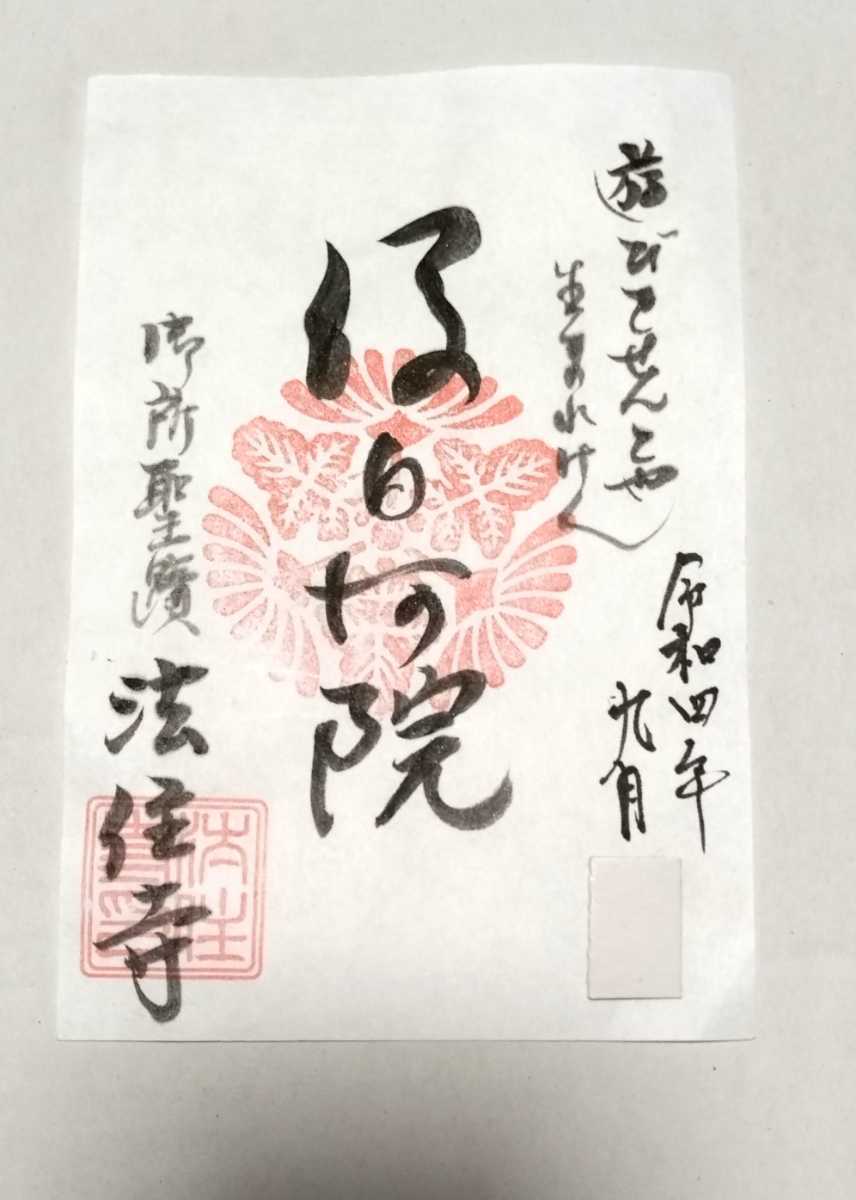 遊びをせんとや
生まれけん
令和四年
九月
後白河院
御所聖蹟
法住寺
法住
寺印